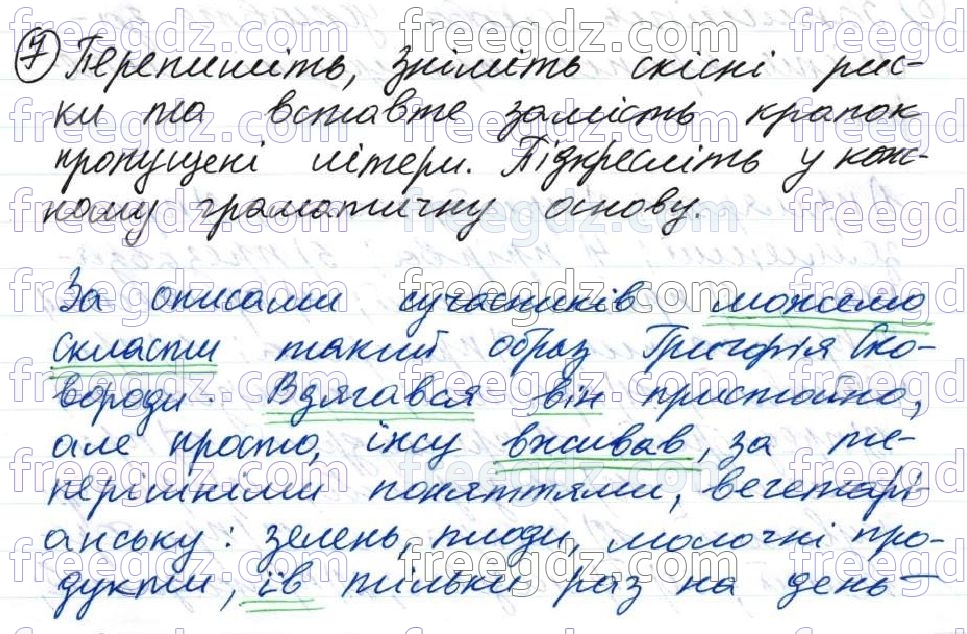 7 Перепишіть, зніміть скісні рис-
ки та вставте замість крапок
пропущені літери. Підкресліть у кож-
ному граматичну основу.
За описами сучасників можемо
скласти такий образ Григорія Ско-
вороди. Вдягався він пристойно,
але просто, їжу вживав, за те-
перішніми поняттями, вегетарі-
анську: зелень, плоди, молочні про-
дукти, їв тільки раз на день –